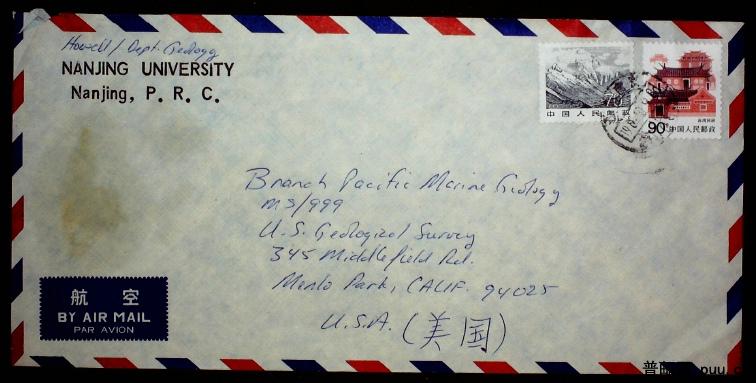 Howell/Dept. Geology
NANJING UNIVERSITY
Nanjing, P. R. C.
70
中国人民邮政
90
中国人民邮政
Branch Pacific Marine Geology
MS/999
U.S. Geological Survey
345 Middlefield Rd.
Menlo Park, CALIF. 94025
U.S.A. (美国)
航空
BY AIR MAIL
PAR AVION